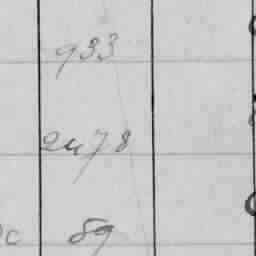 933
2478
c 59